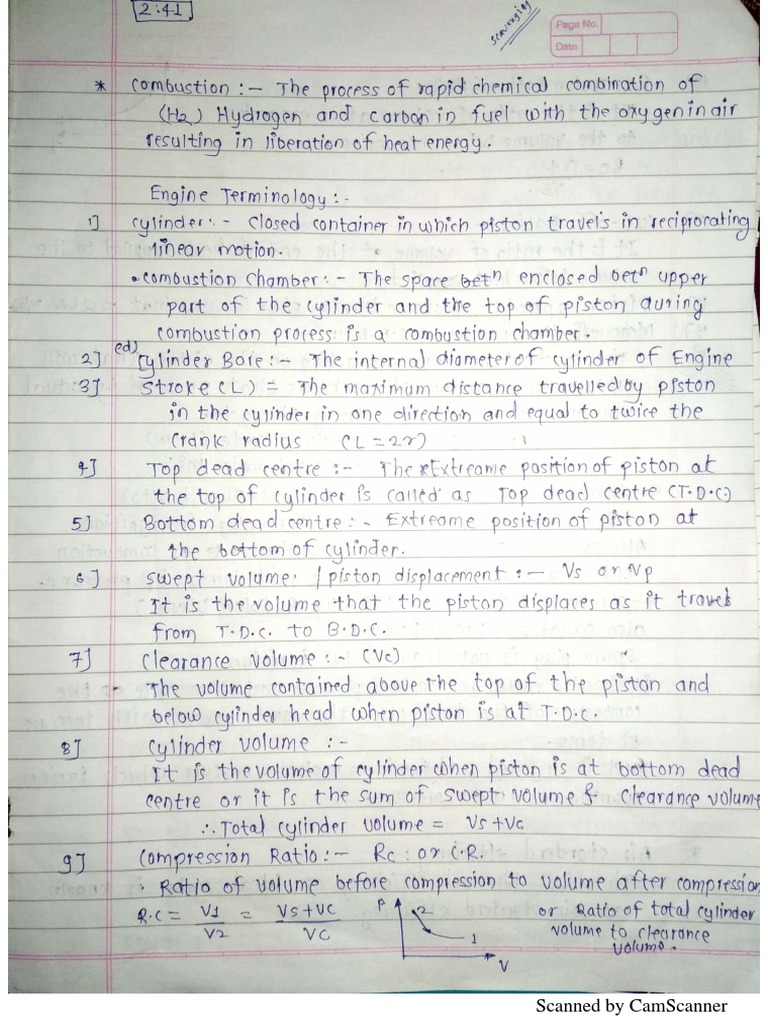 2:41
scavenging
Page No.
Date
* Combustion :- The process of rapid chemical combination of
(H2) Hydrogen and carbon in fuel with the oxygen in air
resulting in liberation of heat energy.
Engine Terminology :-
1] Cylinder :- Closed container in which piston travels in reciprocating
linear motion.
• combustion chamber :- The space betn enclosed betn upper
part of the cylinder and the top of piston during
combustion process is a combustion chamber.
2] (ed) Cylinder Bore :- The internal diameter of cylinder of Engine
3] Stroke (L) = The maximum distance travelled by piston
in the cylinder in one direction and equal to twice the
Crank radius (L=2r)
4] Top dead centre :- The Extreame position of piston at
the top of cylinder is called as Top dead centre (T.D.C.)
5] Bottom dead centre :- Extreame position of piston at
the bottom of cylinder.
6] Swept volume / piston displacement :- Vs or Vp
It is the volume that the piston displaces as it travels
from T.D.C. to B.D.C.
7] Clearance volume :- (Vc)
The volume contained above the top of the piston and
below cylinder head when piston is at T.D.C.
8] Cylinder volume :-
It is the volume of cylinder when piston is at bottom dead
centre or it is the sum of swept volume & Clearance volume
∴ Total cylinder volume = Vs + Vc
9] Compression Ratio :- Rc or C.R.
Ratio of volume before compression to volume after compression
R.C = V1/V2 = Vs + Vc/Vc
P 2 1 V
or Ratio of total cylinder
volume to clearance
volume.
Scanned by CamScanner